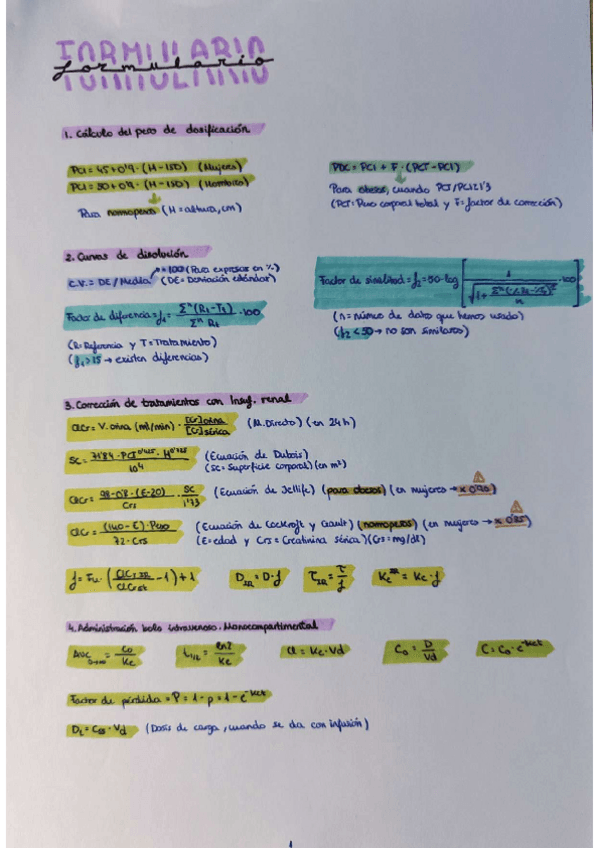 FORMULARIO
formulario
1. Cálculo del peso de dosificación
PCI = 45 + 0'9 · (H - 150) (Mujeres)
PCI = 50 + 0'9 · (H - 150) (Hombres)
Para normopesos (H = altura, cm)
PDC = PCI + F · (PCT - PCI)
Para obesos, cuando PCT/PCI ≥ 1'3
(PCT = Peso corporal total y F = factor de corrección)
2. Curvas de disolución
C.V. = DE / Media → × 100 (Para expresar en %)
(DE = Desviación estándar)
Factor de diferencia = f₁ = Σⁿ (Rt - Tt) / Σⁿ Rt · 100
(R = Referencia y T = Tratamiento)
(f₁ > 15 → existen diferencias)
Factor de similitud = f₂ = 50 · log [ 1 / √(1 + Σⁿ (·/.Rt - ·/.Tt)² / n) · 100 ]
(n = número de datos que hemos usado)
(f₂ < 50 → no son similares)
3. Corrección de tratamientos con Insuf. renal
ClCr = V. orina (ml/min) · [Cr] orina / [Cr] sérica (M. Directo) (en 24 h)
SC = 71'84 · PCT^0'425 · H^0'725 / 10⁴ (Ecuación de Dubois)
(SC = Superficie corporal) (en m²)
ClCr = 98 - 0'8 · (E - 20) / Crs · SC / 1'73 (Ecuación de Jellife) (para obesos) (en mujeres → × 0'90)
ClCr = (140 - E) · Peso / 72 · Crs (Ecuación de Cockroft y Gault) (normopesos) (en mujeres → × 0'85)
(E = edad y Crs = Creatinina sérica) (Crs = mg/dl)
f = Fu · (ClCr IR / ClCr st - 1) + 1
D IR = D · f
τ IR = τ / f
Ke IR = Ke · f
4. Administración bolo intravenoso. Monocompartimental
AUC 0→∞ = C₀ / Ke
t₁/₂ = ln2 / Ke
Cl = Ke · Vd
C₀ = D / Vd
C = C₀ · e^-Ke·t
Factor de pérdida = P = 1 - p = 1 - e^-Ke·t
DL = Css · Vd (Dosis de carga, cuando se da con infusión)
1